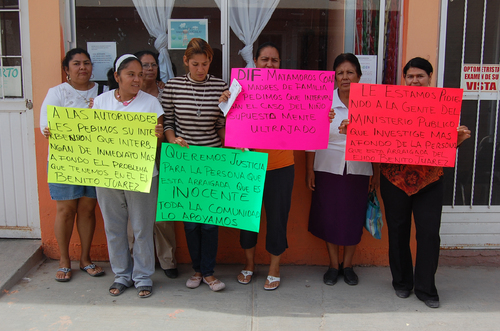 A LAS AUTORIDADES
LES PEDIMOS SU INTER-
BENCION QUE INTERB-
NGAN DE INMEDIATO MAS
A FONDO EL PROBLEMA
QUE TENEMOS EN EL E
BENITO JUAREZ
QUEREMOS JUSTICIA
PARA LA PERSONA QUE
ESTA ARRAIGADA QUE ES
INOCENTE
TODA LA COMUNIDAD
LO APOYAMOS
DIF. MATAMOROS COAH
MADRES DE FAMILIA
PEDIMOS QUE INTERV
EN EL CASO DEL NIÑO
SUPUESTO MENTE
ULTRAJADO
LE ESTAMOS PIDIE
NDO A LA GENTE DEL
MINISTERIO PUBLICO
QUE INVESTIGE MAS
A FONDO DE LA PERSONA
QUE ESTA ARRAIGADA DEL
EJIDO BENITO JUAREZ
OPTOMETRISTA
EXAMEN DE
VISTA